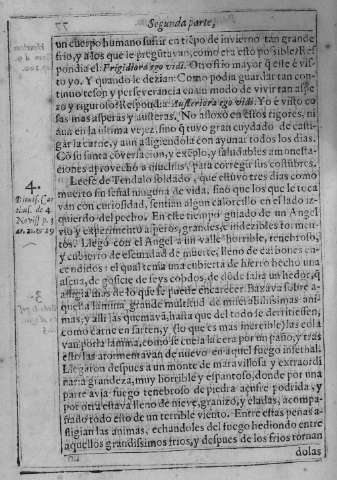 Segunda parte,
un cuerpo humano sufrir en tiẽpo de invierno tan grande
frio, y à los que le pregũtavan, como era esto possible? Res
pondia el: Frigidiora ego vidi. Otro frio mayor q̃ este è vis
to yo. Y quando le dezian: Como podia guardar tan con-
tinuo teson y perseverancia en un modo de vivir tan aspe
ro y riguroso? Respondia: Austeriora ego vidi. Yo è visto co
sas mas asperas y austeras. No afloxò en estos rigores, ni
aun en la ultima vejez, sino q̃ tuvo gran cuydado de casti-
gar la carne, y aun afligiendola con ayunar todos los dias.
Cõ su santa cõversacion, y exẽplo, y saludables amonesta-
ciones aprovechò a muchos, para corregir sus costũbres.
Leese de Tendalo soldado, que estuvo tres dias como
muerto sin señal ninguna de vida, sinò que los que le toca
van con curiosidad, sentian algun calorcillo en el lado iz
quierdo del pecho. En este tiempo guiado de un Angel
viò y experimentò asperos, grandes, è indezibles tormen-
tos. Llegò con el Angel a un valle horrible, tenebroso,
y cubierto de escuridad de muerte, lleno de carbones en-
cendidos: el qual tenia una cubierta de hierro hecho una
ascua, de grosseza de seys cobdos, de dõde salia un hedor, q̃
afligia mas de lo que se puede encarecer. Baxava sobre a-
quella lamina grande multitud de miserabilissimas ani-
mas, y alli las quemava, hasta que del todo se derritiessen,
como carne en sarten, y (lo que es mas increible) las cola
van por la lamina, como se cuela la cera por un paño, y tras
esto las atormentavan de nuevo en aquel fuego infernal.
Llegaron despues a un monte de maravillosa y extraordi
naria grandeza, muy horrible y espantoso, donde por una
parte avia fuego tenebroso de piedra açufre podrida, y
por otra estava lleno de nieve, granizo, y eladas, acompa-
ñado todo esto de un terrible viento. Entre estas penas a-
fligian las animas, echandoles del fuego hediondo entre
aquellos grandissimos frios, y despues de los frios tornan
dolas
4.